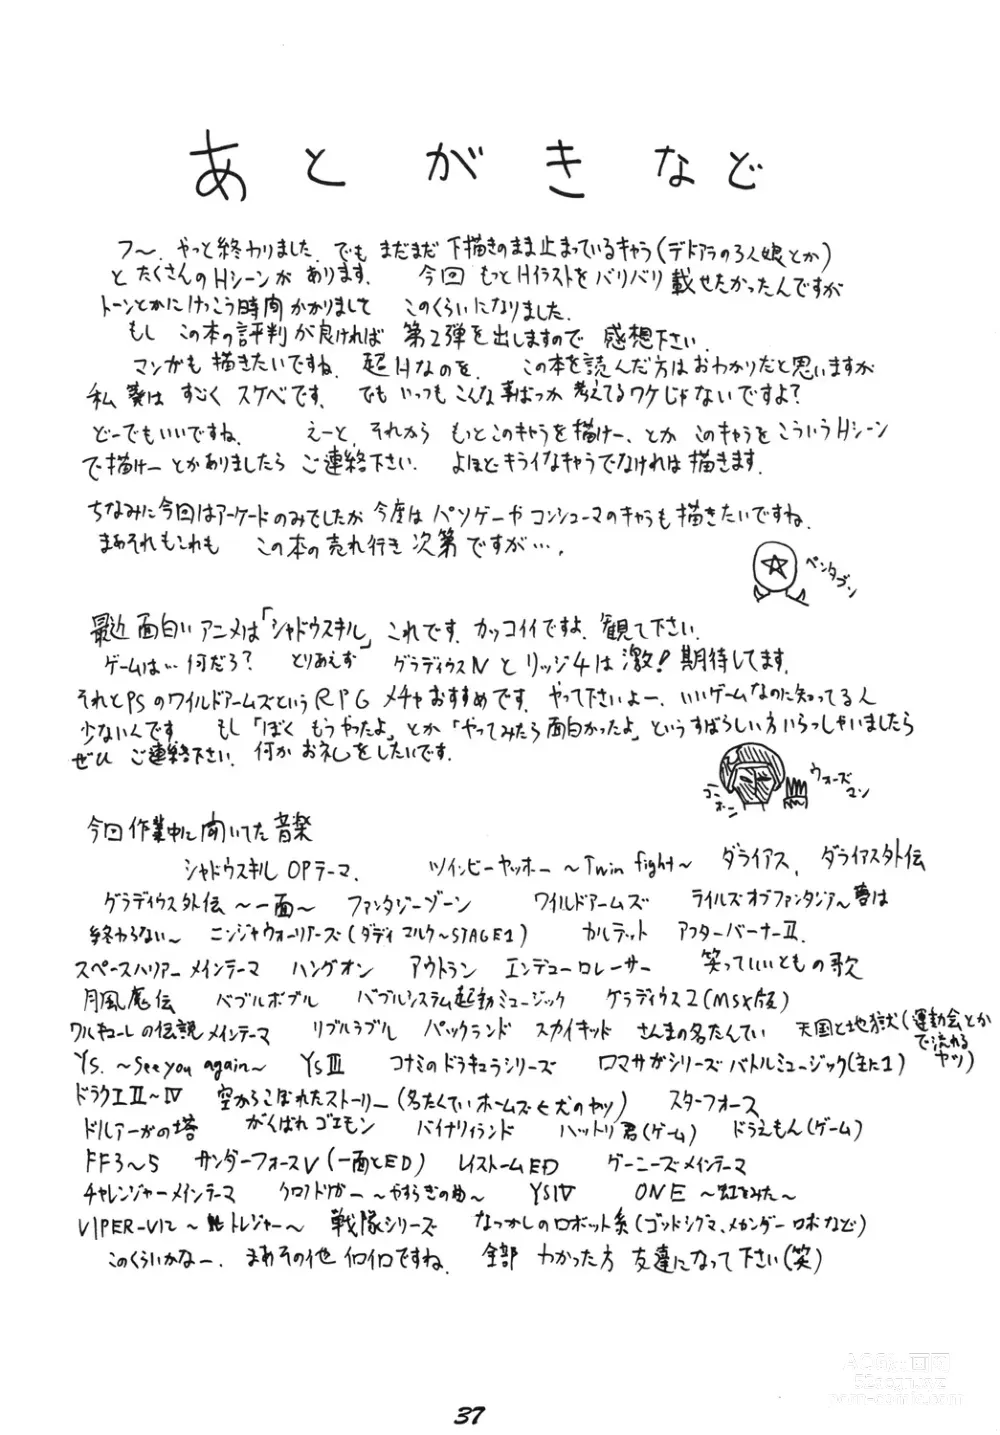 あとがきなど
フ～、やっと終わりました。でも まだまだ 下描きのまま止まっているキャラ(デドアラの3人娘とか)
と たくさんのHシーンが あります。 今回 もっとHイラストを バリバリ 載せたかったんですが
トーンとかに けっこう時間 かかりまして このくらいになりました。
もし この本の評判が良ければ 第2弾を出しますので 感想下さい。
マンガも 描きたいですね。 超Hなのを。 この本を読んだ方はおわかりだと思いますが
私 はすごく スケベです。 でも いっつも こんな事ばっか 考えてるワケじゃないですよ?
どーでもいいですね。 えーと、それから もっとこのキャラを描けー、とか このキャラを こういうHシーン
で描けー とかありましたら ご連絡下さい。 よほどキライなキャラでなければ描きます。
ちなみに今回はアーケードのみでしたが 今度は パソゲーや コンシューマのキャラも 描きたいですね。
まあそれもこれも この本の売れ行き 次第 ですが…。
ペンタゴン
最近 面白いアニメは「シャドウスキル」 これです。カッコイイですよ。観て下さい。
ゲームは… 何だろ? とりあえず グラディウスⅣ と リッジ4は 激!期待してます。
それとPSのワイルドアームズという RPG メチャおすすめです。 やって下さいよー、いいゲームなのに知ってる人
少ないんです。 もし「ぼく もうやったよ」とか「やってみたら面白かったよ」というすばらしい方いらっしゃいましたら
ぜひ ご連絡下さい。何か お礼をしたいです。
コーホー
ウォーズマン
今回 作業中に 聞いてた 音楽
シャドウスキル OPテーマ、 ツインビーヤッホー ～Twin fight～ ダライアス、 ダライアス外伝
グラディウス外伝 ～一面～ ファンタジーゾーン ワイルドアームズ テイルズオブファンタジア～夢は
終わらない～ ニンジャウォーリアーズ(ダディ マルク～STAGE1) カルテット アフターバーナーⅡ、
スペースハリアー メインテーマ ハングオン アウトラン エンデューロレーサー 笑っていいともの歌
月風魔伝 バブルボブル バブルシステム起動ミュージック グラディウス2(MSX版)
ワルキューレの伝説 メインテーマ リブルラブル パックランド スカイキッド さんまの名たんてい 天国と地獄(運動会とか
で流れる
ヤツ)
Ys. ～See you again～ YsⅢ コナミのドラキュラシリーズ ロマサガシリーズ バトルミュージック(主に1)
ドラクエⅡ～Ⅳ 空からこぼれたストーリー(名たんていホームズと犬のヤツ) スターフォース
ドルアーガの塔 がんばれゴエモン バイナリィランド ハットリ君(ゲーム) ドラえもん(ゲーム)
FF3～5 サンダーフォースⅤ(一面とED) レイストームED グーニーズメインテーマ
チャレンジャーメインテーマ クロノトリガー ～やすらぎの曲～ YSⅣ ONE ～虹をみた～
VIPER-V12 ～ トレジャー～ 戦隊シリーズ なつかしのロボット系(ゴッドシグマ、メカンダーロボなど)
このくらいかなー、 まあその他 イロイロですね。 全部 わかった方 友達になって下さい(笑)
37